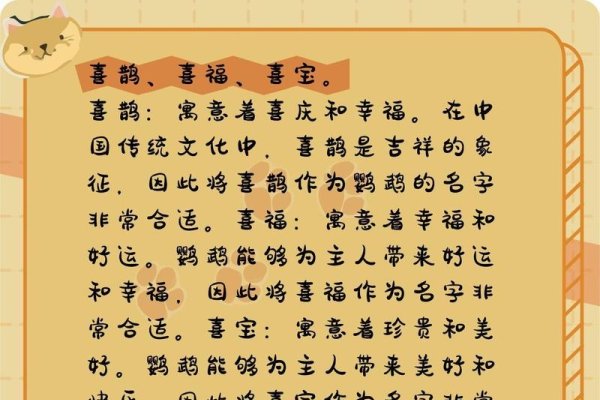 喜鹊、喜福、喜宝。
喜鹊：寓意着喜庆和幸福。在中
国传统文化中，喜鹊是吉祥的象
征，因此将喜鹊作为鹦鹉的名字
非常合适。喜福：寓意着幸福和
好运。鹦鹉能够为主人带来好运
和幸福，因此将喜福作为名字非
常合适。喜宝：寓意着珍贵和美
好。鹦鹉能够为主人带来美好和
快乐，因此将喜宝作为名字非常